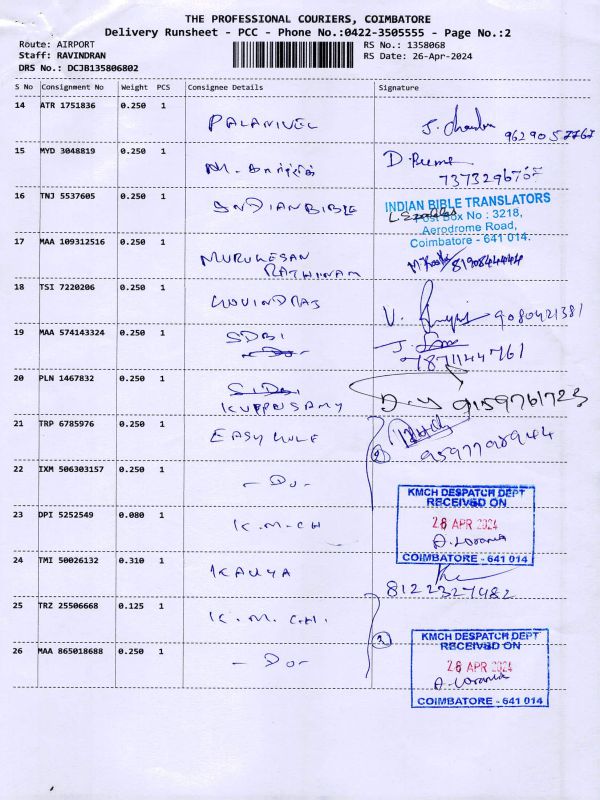 THE PROFESSIONAL COURIERS, COIMBATORE
Delivery Runsheet - PCC - Phone No.:0422-3505555 - Page No.:2
Route: AIRPORT
Staff: RAVINDRAN
DRS No.: DCJB135806802
RS No.: 1358068
RS Date: 26-Apr-2024
S No Consignment No Weight PCS Consignee Details Signature
14 ATR 1751836 0.250 1
PALANIVEL
15 MYD 3048819 0.250 1
M.
16 TNJ 5537605 0.250 1
INDIAN BIBLE
INDIAN BIBLE TRANSLATORS
Post Box No : 3218,
Aerodrome Road,
Coimbatore - 641 014.
17 MAA 109312516 0.250 1
MURUGESAN
RATHINAM
8190844444
18 TSI 7220206 0.250 1
GOVINDRAJ
V. 9080421381
19 MAA 574143324 0.250 1
SDBI
J.
7871144761
20 PLN 1467832 0.250 1
KUPPUSAMY
9159761723
21 TRP 6785976 0.250 1
2
9597798944
22 IXM 506303157 0.250 1
- Do -
23 DPI 5252549 0.080 1
K.M.CH
KMCH DESPATCH DEPT
RECEIVED ON
26 APR 2024
COIMBATORE - 641 014
24 TMI 50026132 0.310 1
KAVYA
8122327482
25 TRZ 25506668 0.125 1
K.M.C.H.
2
26 MAA 865018688 0.250 1
- Do -
KMCH DESPATCH DEPT
RECEIVED ON
26 APR 2024
COIMBATORE - 641 014